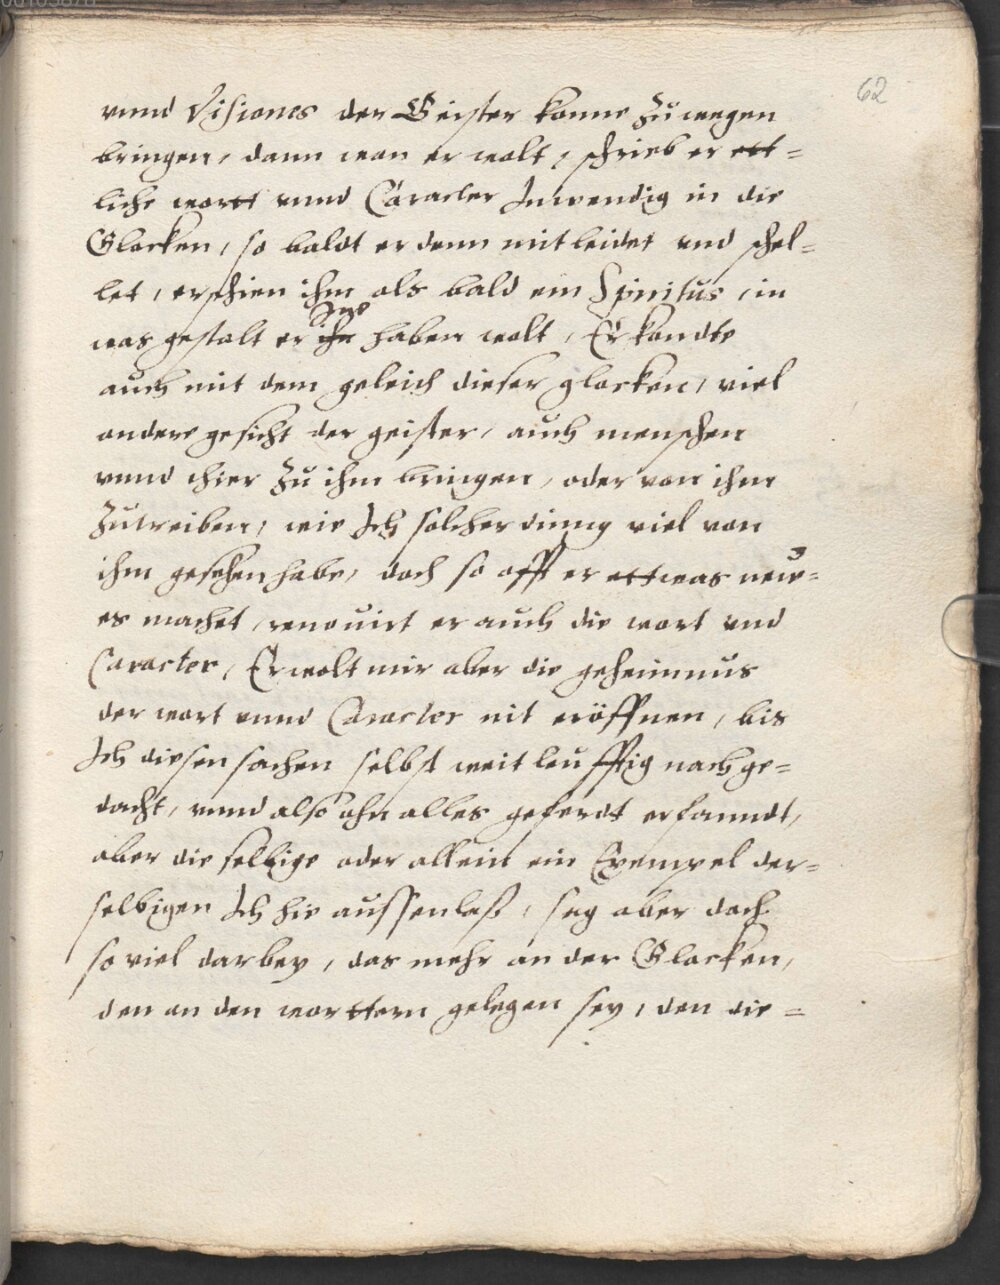 62
vnnd Visiones der Geister konne zu wegen
bringen, dann wan er wolt, schrieb er ett=
liche wortt vnnd Caracter Inwendig in die
Glocken, so baldt er denn mit leidet vnd schel=
let, erschien ihm als bald ein Spiritus, in
was gestalt er ihn haben wolt, Er kondte
auch mit dem geleich dieser glocken, viel
andere gesicht der geister, auch menschen
vnnd thier zu ihm bringen, oder von ihm
zutreiben, wie Ich solcher dinng viel von
ihm gesehen habe, doch so offt er ettwas new=
es machet, renouirt er auch die wort vnd
Caracter, Er wolt mir aber die geheimnus
der wort vnnd Caracter nit eröffnen, bis
Ich diesen sachen selbst weitleufftig nachge=
dacht, vnnd also ohn alles geferdt erfanndt,
aber die selbige oder allein ein Exempel der=
selbigen Ich hie aussenlaß, sag aber doch
so viel darbey, das mehr an der Glocken,
den an den worttern gelegen sey, den die=